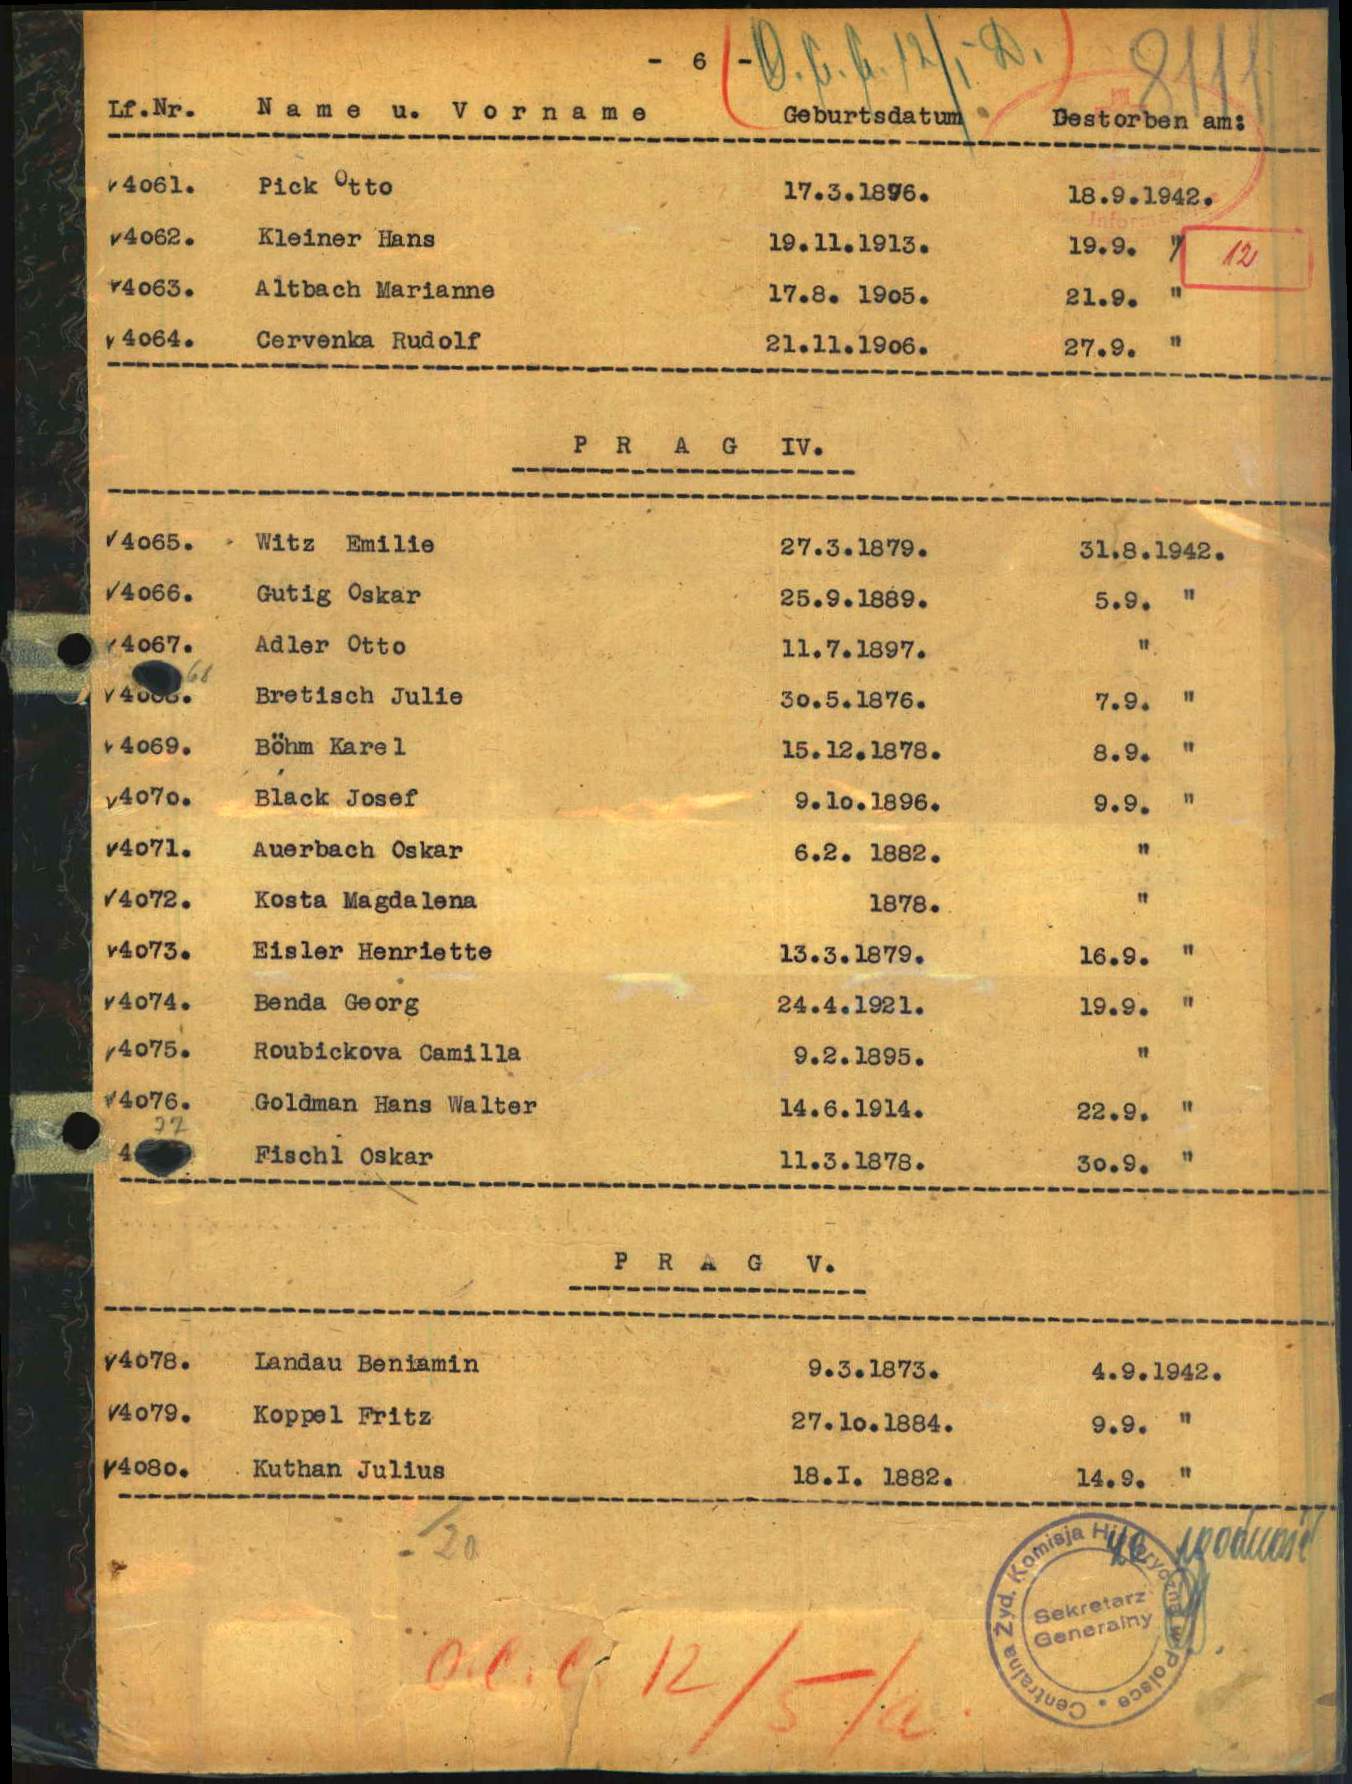 - 6 -
8111
Lf.Nr. Name u. Vorname Geburtsdatum Gestorben am:
v 4o61. Pick Otto 17.3.1896. 18.9.1942.
v 4o62. Kleiner Hans 19.11.1913. 19.9. "
12
v 4o63. Altbach Marianne 17.8. 19o5. 21.9. "
v 4o64. Cervenka Rudolf 21.11.19o6. 27.9. "
PRAG IV.
v 4o65. Witz Emilie 27.3.1879. 31.8.1942.
v 4o66. Gutig Oskar 25.9.1889. 5.9. "
v 4o67. Adler Otto 11.7.1897. "
68
v 4o68. Bretisch Julie 3o.5.1876. 7.9. "
v 4o69. Böhm Karel 15.12.1878. 8.9. "
v 4o7o. Black Josef 9.1o.1896. 9.9. "
v 4o71. Auerbach Oskar 6.2. 1882. "
v 4o72. Kosta Magdalena 1878. "
v 4o73. Eisler Henriette 13.3.1879. 16.9. "
v 4o74. Benda Georg 24.4.1921. 19.9. "
v 4o75. Roubickova Camilla 9.2.1895. "
v 4o76. Goldman Hans Walter 14.6.1914. 22.9. "
77
4 Fischl Oskar 11.3.1878. 3o.9. "
PRAG V.
v 4o78. Landau Beniamin 9.3.1873. 4.9.1942.
v 4o79. Koppel Fritz 27.1o.1884. 9.9. "
v 4o8o. Kuthan Julius 18.I. 1882. 14.9. "
20
za zgodność
Centralna Żyd. Komisja Historyczna w Polsce
Sekretarz
Generalny
O.C.C. 12/5/a.